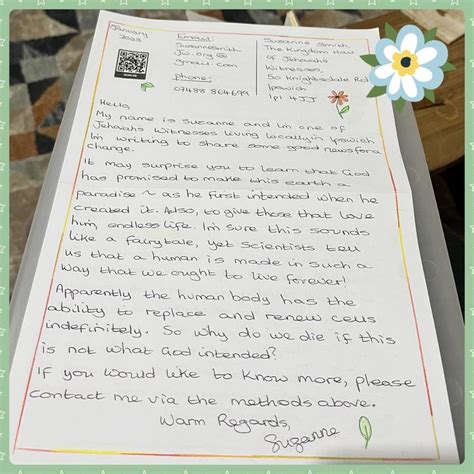 January
2023
Email:
Suzannesmith.
jw.org@
gmail.com
phone:
07488 864699
Suzanne Smith,
The Kingdom Hall
of Jehovah's
Witnesses,
50 Knightsdale Rd
Ipswich
IP1 4JJ
Hello,
My name is Suzanne and I'm one of
Jehovah's Witnesses living locally in Ipswich
I'm writing to share some good news for a
change.
It may surprise you to learn that God
has promised to make this earth a
paradise ~ as he first intended when he
created it. Also, to give those that love
him, endless life. I'm sure this sounds
like a fairytale, yet Scientists tell
us that a human is made in such a
way that we ought to live forever!
Apparently the human body has the
ability to replace and renew cells
indefinitely. So why do we die if this
is not what God intended?
If you would like to know more, please
contact me via the methods above.
Warm Regards,
Suzanne